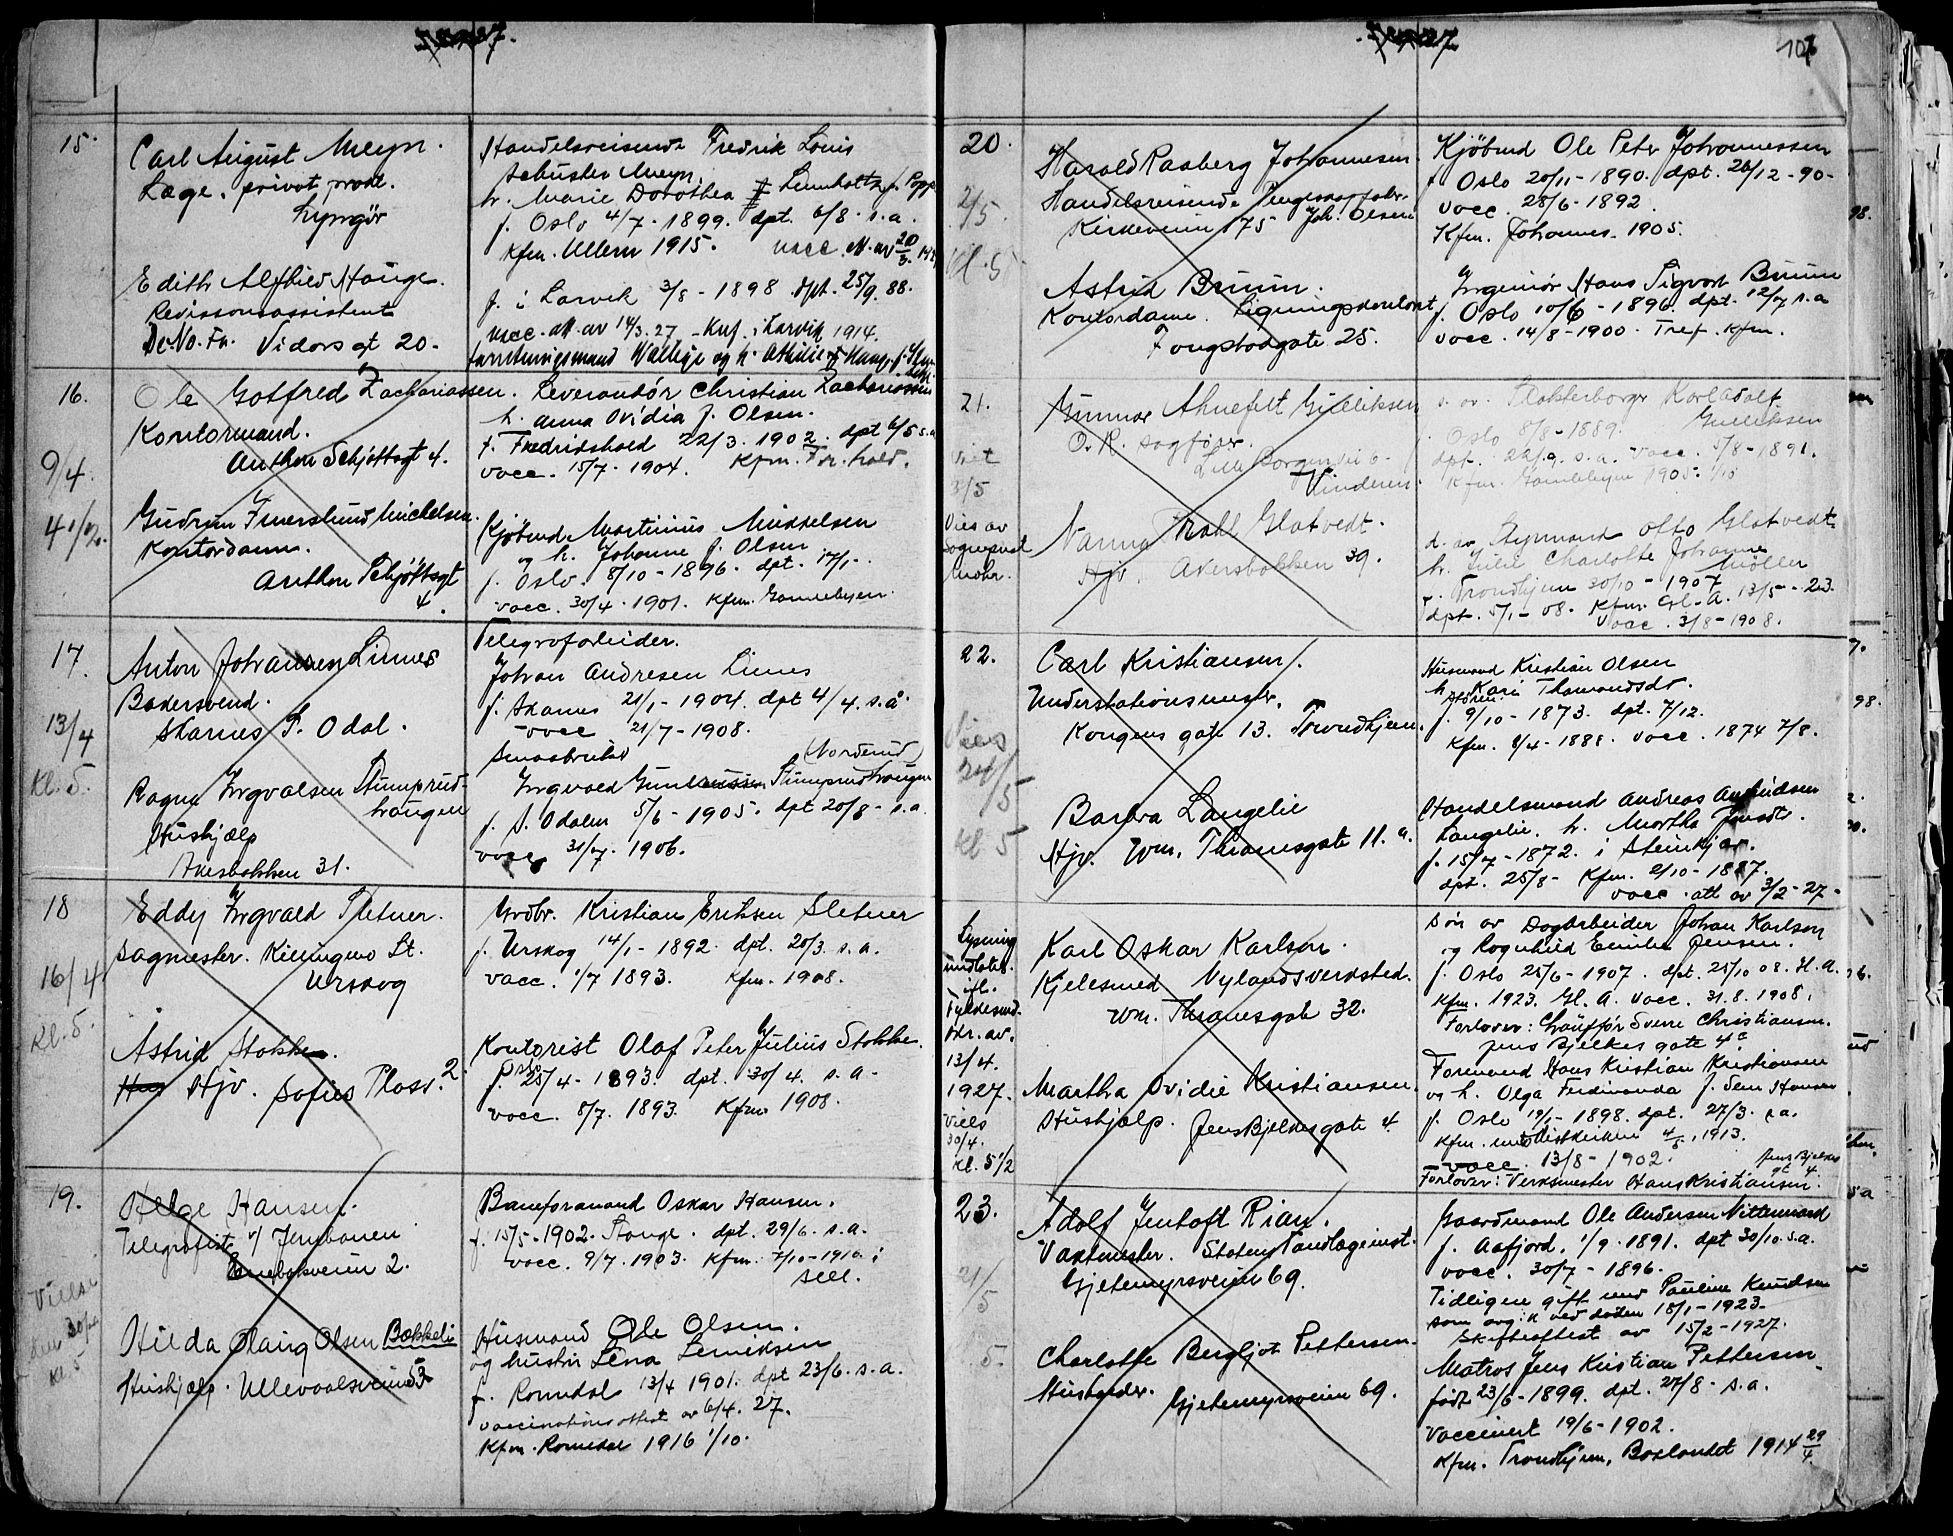 1927.
15.
Carl August Meyn.
Læge, privat prakt.
Lyngør
Handelsreisende Fredrik Louis
Schuster Meyn.
h. Marie Dorothea Linnholtz f. Popp
f. Oslo 4/7 - 1899. dpt. 6/8 - s.a.
Kfm. Ullern 1915. vacc. A. av 20/3
Edith Alfhild Hauge.
Revisionsassistent
De No. Fa. Vidars gt 20.
f. i Larvik 3/8 - 1898 dpt. 25/9. 88.
vacc. att. av 14/3. 27 - Knf. i Larvik 1914.
16.
9/4
Ole Gotfred Zachariassen.
Kontormand.
Anthon Schjøttsgt 4.
Leverandør Christian Zachariassen
h. Anna Ovidia f. Olsen.
f. Fredrikshald 22/3. 1902. dpt 6/5 s.a
vacc. 15/7 - 1904. Kfm. Fr. hald.
Gudrun Imerslund Mickelsen.
Kontordame.
Anthon Schjøttsgt
4.
Kjøbmd Martinius Mikkelsen
og h. Johanne f. Olsen
f. Oslo. 8/10 - 1896. dpt. 17/1 -
vacc. 30/4 - 1901. Kfm. Gamlebyen.
17.
13/4
Kl. 5.
Anton Johansen Linnes
Bakersvend.
Skarnes S. Odal.
Telegrafarbeider.
Johan Andresen Linnes
f. Skarnes 21/1 - 1904. dpt 4/4. s.å.
vacc 21/7 - 1908.
Ragna Ingvalsen Stumprud-
haugen
Hushjælp
Akersbakken 31.
Smaabruker (Norderud)
Ingvald Gundersen Stumprudhaugen
f. S. Odalen 5/6 - 1905. dpt 20/8 - s.a.
vacc. 31/7 - 1906.
18
16/4
Kl. 5.
Eddy Ingvald Sletner.
Sagmester. Killingmo St.
Urskog
Grdbr. Kristian Eriksen Sletner
f. Urskog 14/1 - 1892. dpt. 20/3. s.a.
vacc. 1/7 1893. Kfm. 1908.
Astrid Stokke.
Hjv. Sofies Plass. 2.
Kontorist Olaf Peter Julius Stokke.
f. Oslo 25/4 - 1893. dpt. 30/4. s.a.
vacc. 8/7. 1893. Kfm. 1908.
19.
Vielse
den 30/4
Kl. 5
Helge Hansen.
Telegrafist v/ Jernbanen
Enebakveien 2.
Baneformand Oskar Hansen.
f. 15/5 - 1902. Stange. dpt. 29/6. s.a.
vacc. 9/7. 1903. Kfm. 7/10 - 1916 i
sted.
Hilda Olaug Olsen Bakkeli
Hushjælp. Ullevaalsveien 53
Husmand Ole Olsen.
og hustru Lena Lauritsen
f. Romedal 13/4 1901. dpt 23/6. s.a.
vaccinationsattest av 6/4. 27.
Kfm. Romedal 1916 1/10.
1927.
107
20.
2/5.
Kl. 5
Harald Raaberg Johannesen.
Handelsreisende
Kirkeveien 175 Joh. Olsen
Kjøbmd Ole Peter Johannessen
f. Oslo 20/11 - 1890. dpt. 26/12 - 90 -
vacc. 28/6 - 1892.
Kfm. Johannes. 1905.
Astrid Bruun.
Kontordame. Ligningskontoret,
Fougstadsgate 25.
Ingeniør Hans Sigvart Bruun
f. Oslo 10/6 - 1896. dpt. 12/7 s.a
vacc. 14/8 - 1900. Tref. Kfm.
21.
Viet
3/5
Vies av
Sogneprest
Mohr.
Gunnar Ahnefelt Gulliksen
O.R. sagfører.
Lille Borgenvei 6.
Vinderen.
s. av Slakterborger Karl Adolf
Gulliksen
f. Oslo 8/8 - 1889.
dpt. 22/9. s.a. vacc. 5/8 - 1891.
Kfm. Gamlebyen 1905. 1/10
Nanna Prahl Glatvedt.
Hjv. Akersbakken 39.
d. av Styrmand Otto Glatvedt
h. Julie Charlotte Johanne
Møller
f. Trondhjem 30/10 - 1907
dpt. 5/1 - 08. Kfm. Gl. A. 13/5 - 23.
Vacc. 3/8 - 1908.
22.
Vies
24/5
Kl 5
Carl Kristiansen.
Understationsmester.
Kongens gate 13. Trondhjem.
Husmand Kristian Olsen
h. Kari Thomasdt.
Støren
f. 9/10 - 1873. dpt. 7/12.
Kfm. 8/4 - 1888. vacc. 1874 7/8.
Barbra Langelie
Hjv. Wm. Thranesgate 11. a.
Handelsmand Andreas Amundsen
Langelie. h. Martha Jensdt.
f. 15/7 - 1872. i Steinkjær.
dpt. 25/8 - Kfm. 2/10 - 1887.
vacc. att av 3/2 - 27 -
Lysning
undlatt
ifl.
Fylkesmd.
br. av.
13/4.
1927.
Viels
30/4.
Kl. 5 1/2
Karl Oskar Karlsen.
Kjelesmed Nylands verksted.
Wm. Thranesgate 32.
Søn av Dagarbeider Johan Karlson
og Ragnhild Emilie Jensen.
f. Oslo 25/6 - 1907. dpt. 25/10 08. H.A.
Kfm. 1923. Gl. A. vacc. 31.8. 1908.
Forlover: Chauffør Sverre Christiansen.
Jens Bjelkes gate 4c
Martha Ovidie Kristiansen.
Hushjælp. Jens Bjelkes gate 4.
Formand Hans Kristian Kristiansen
og h. Olga Ferdinanda f. Sem Hansen
f. Oslo 19/1 - 1898. dpt. 27/3. s.a.
Kfm. 4/5. 1913.
vacc. 13/8 - 1902. Jens Bjelkes
gt 4.
Forlover: Verksmester Hans Kristiansen.
23.
21/5
5.
Adolf Jentoft Rian.
Vaktmester. Statens Tandlægeinst.
Gjetemyrsveien 69.
Gaardmand Ole Andersen Nittermand
f. Aafjord. 1/9 - 1891. dpt 30/10. s.a.
vacc. 30/7 - 1896.
Tidligere gift med Pauline Knudsen
som avg. ved døden 18/1 - 1923.
Skifteattest av 15/2 - 1927.
Charlotte Bergljot Pettersen.
Husholder. Gjetemyrsveien 69.
Matros Jens Kristian Pettersen.
født 23/6 - 1899. dpt. 27/8 - s.a.
Vaccinert 19/6 - 1902.
Kfm. Trondhjem, Baklandet 1914 29/4